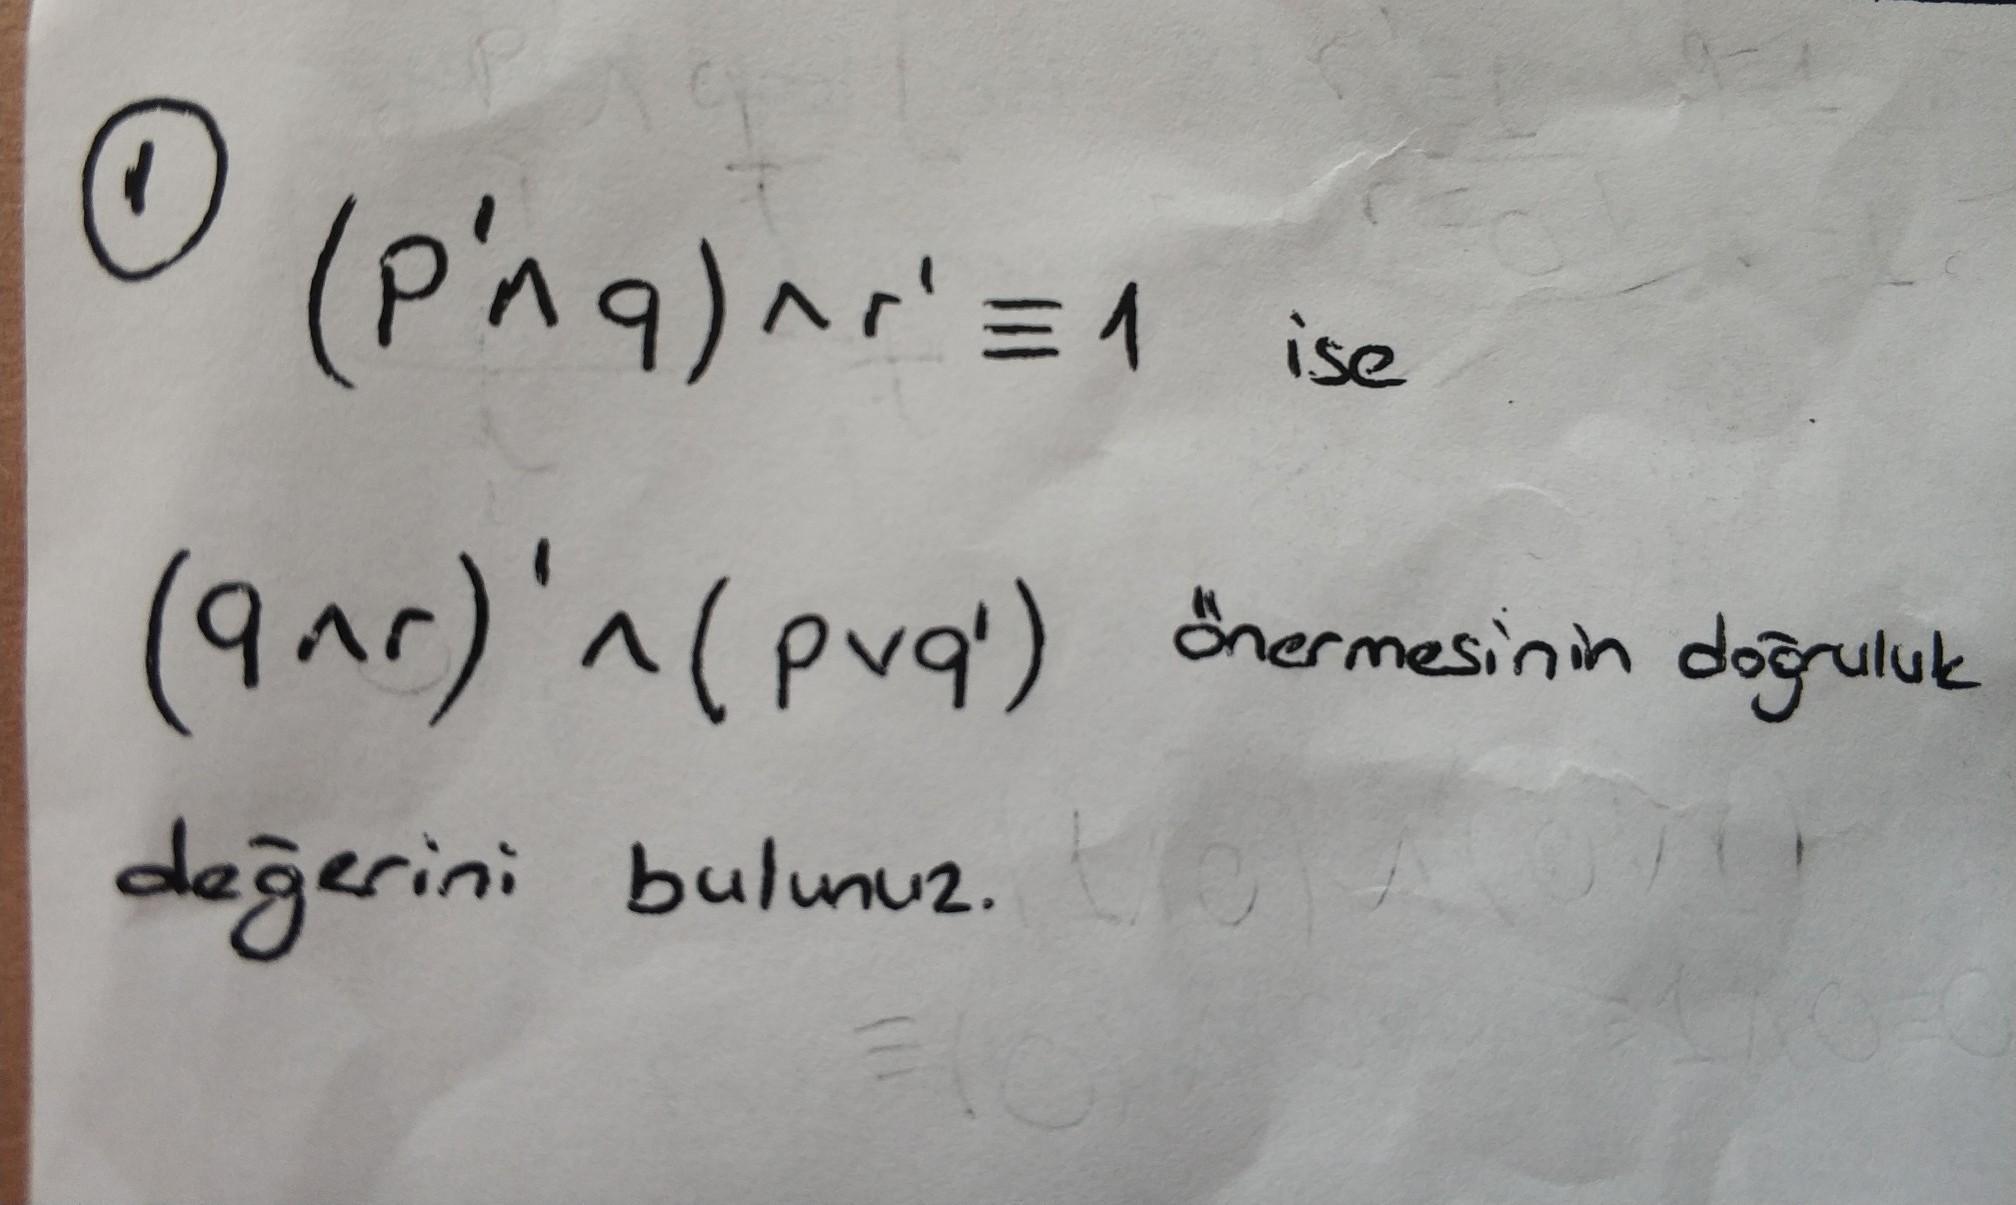 1
(p'∧q)∧r'≡1 ise
(q∧r)'∧(p∨q') önermesinin doğruluk
değerini bulunuz.